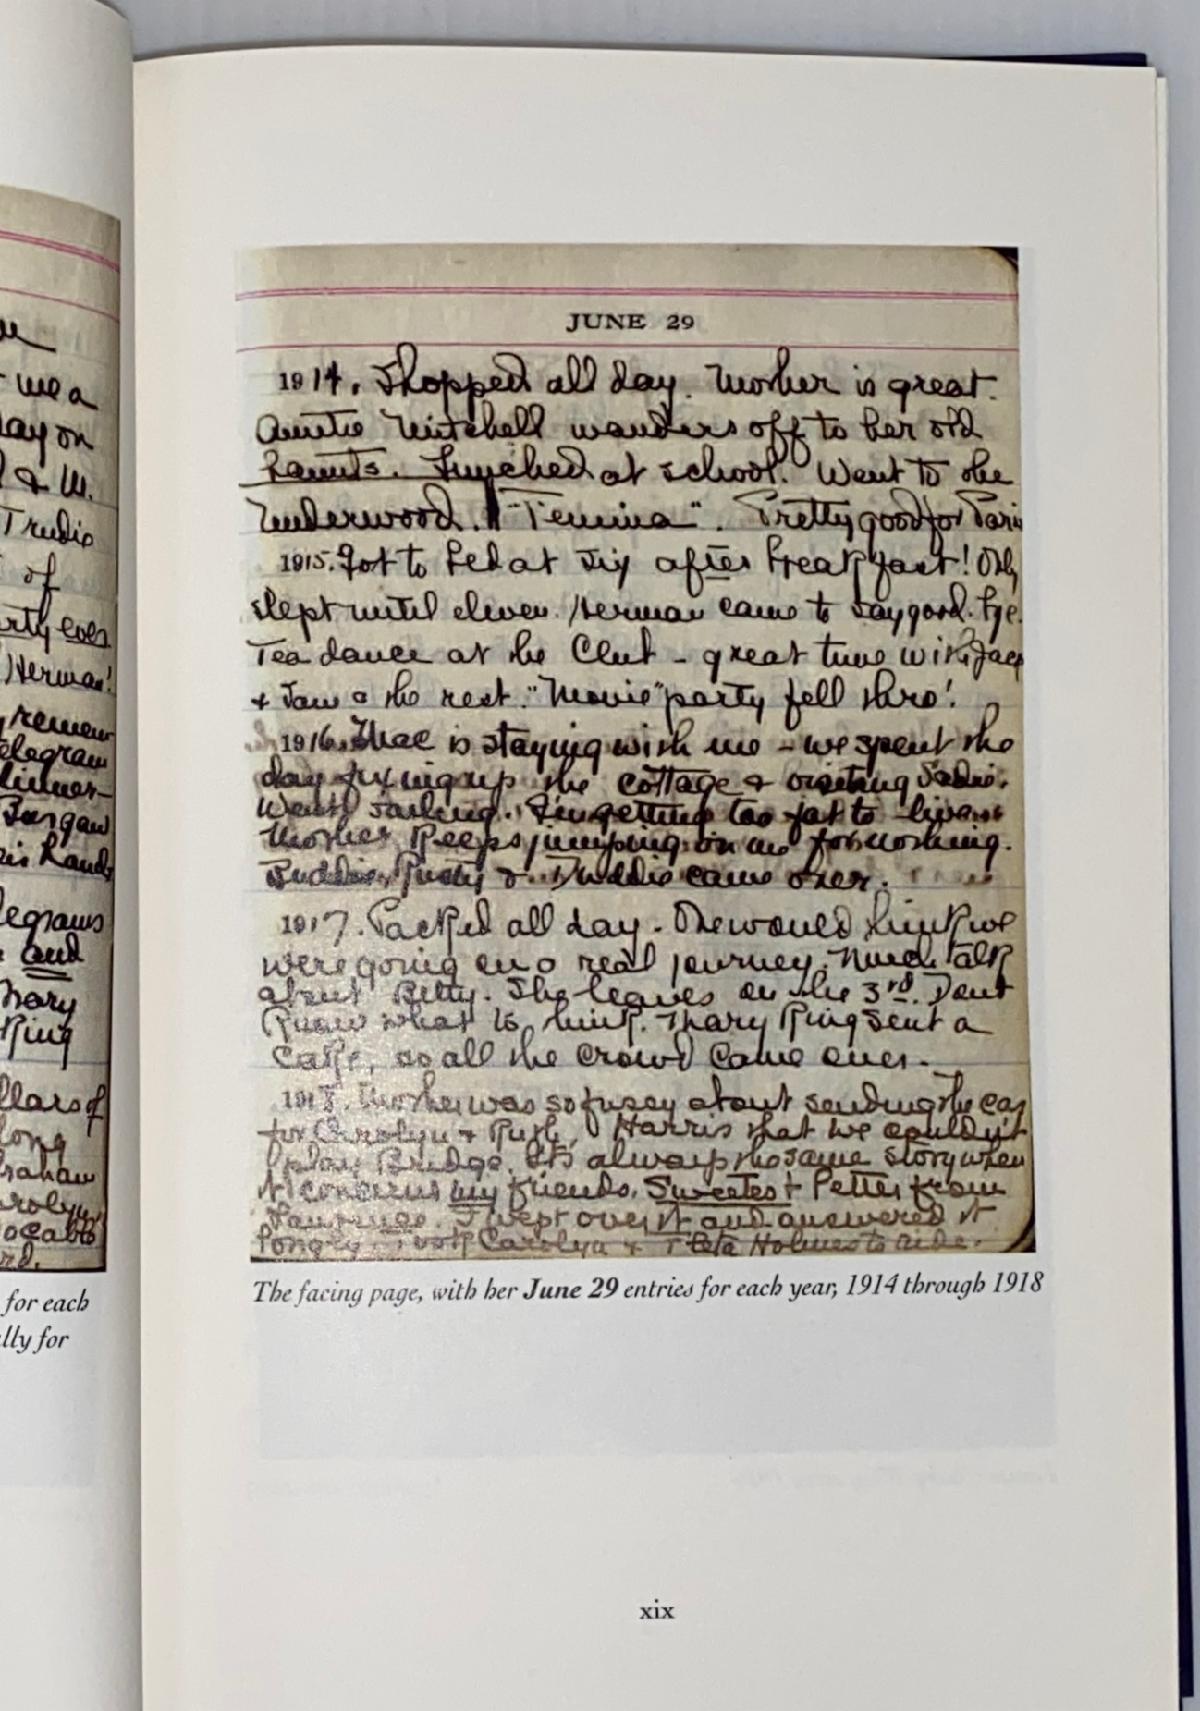 me a
ay on
& M.
Trudie
of
rty ever
Herman!
elegram
dinner-
Hands
legrams
and
Mary
King
llars of
long
raham
for each
lly for
JUNE 29
1914. Shopped all day. Mother is great.
Auntie Mitchell wanders off to her old
haunts. Lunched at school. Went to the
Underwood. "Femina". Pretty good for Paris
1915. Got to bed at six after breakfast! Only
slept until eleven. Herman came to say good-bye.
Tea dance at the Club - great time with Jack
& Sam & the rest. "Movie" party fell thro'!
1916. Mae is staying with me - we spent the
day fixing up the cottage & visiting Sadie.
Went sailing. I'm getting too fat to live &
Mother keeps jumping on me for nothing.
Rusty & Duddie came over.
1917. Packed all day. One would think we
were going on a real journey. Much talk
about Betty. She leaves on the 3rd. Dont
know what to think. Mary King sent a
cake, so all the crowd came over.
1918. Mother was so fussy about sending the car
for Carolyn & Ruth Harris that we couldn't
play Bridge. It's always the same story when
it concerns my friends. Sweetest letter from
I wept over it and answered it
Took Carolyn & Holmes to ride.
The facing page, with her June 29 entries for each year, 1914 through 1918
xix